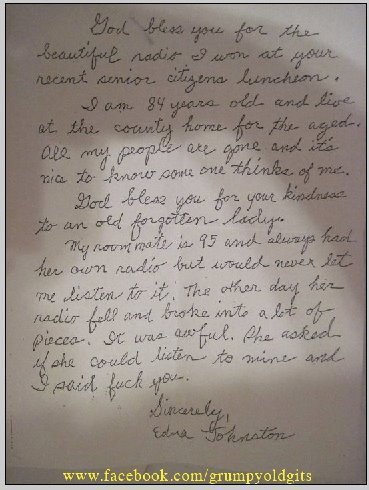 God bless you for the
beautiful radio I won at your
recent senior citizens luncheon.
I am 84 years old and live
at the county home for the aged.
All my people are gone and it's
nice to know some one thinks of me.
God bless you for your kindness
to an old forgotten lady.
My roommate is 95 and always had
her own radio but would never let
me listen to it. The other day her
radio fell and broke into a lot of
pieces. It was awful. She asked
if she could listen to mine and
I said fuck you.
Sincerely,
Edna Johnston
www.facebook.com/grumpyoldgits